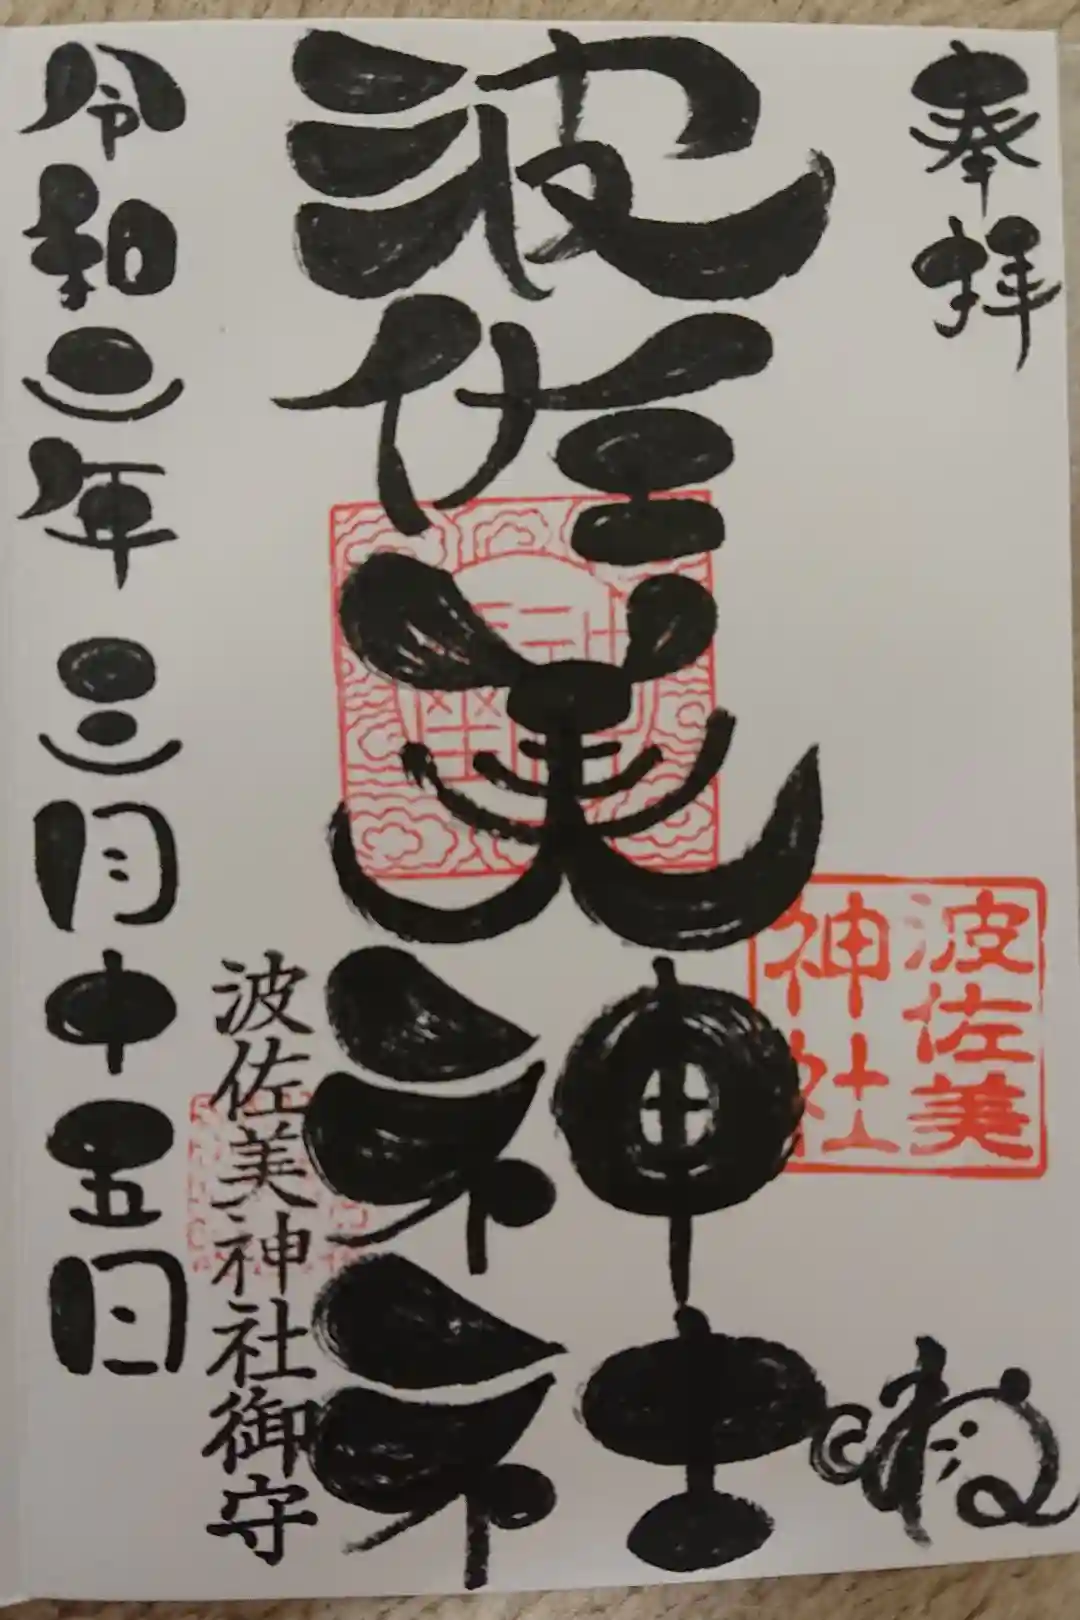 奉拝
波佐美神社
波佐美
神社
波佐美神社御守
令和二年三月十五日